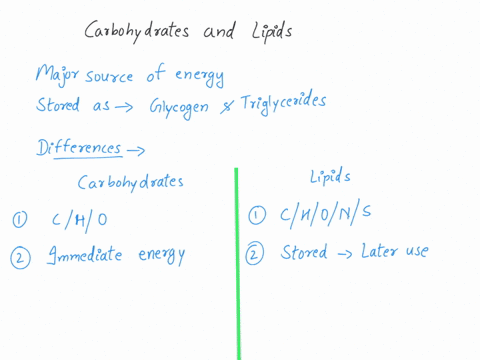 Carbohydrates and Lipids
Major source of energy
Stored as → Glycogen & Triglycerides
Differences →
Carbohydrates
① C/H/O
② Immediate energy
Lipids
① C/H/O/N/S
② Stored → Later use